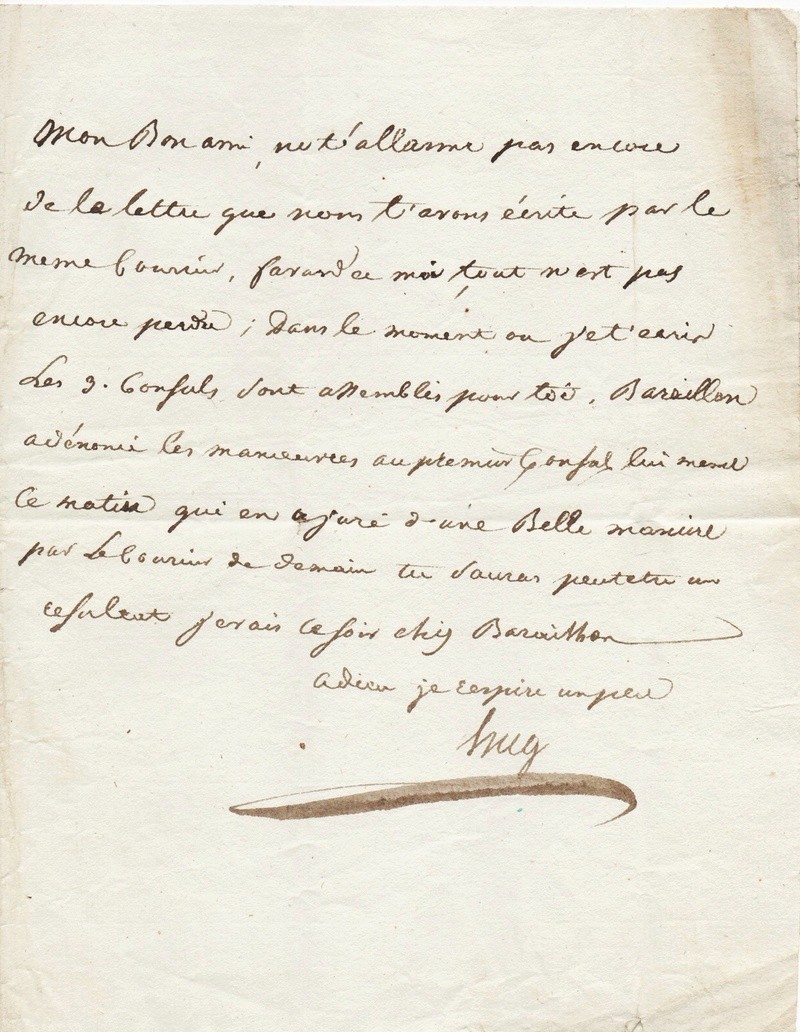 Mon Bon ami, ne t'allarme pas encore
de la lettre que nous t'avons écrite par le
meme Courier, favard ce moi, tout n'est pas
encore perdu ; Dans le moment ou je t'ecris
Les 3. Consuls sont assemblés pour toi. Baraillon
a dénoncé les manoeuvres au premier Consul lui meme
Ce matin qui en a juré d'une Belle maniere
par Le Courier de demain tu sauras peutetre un
resultat j'erais ce soir chez Baraillon
adieu je respire un peu
hug